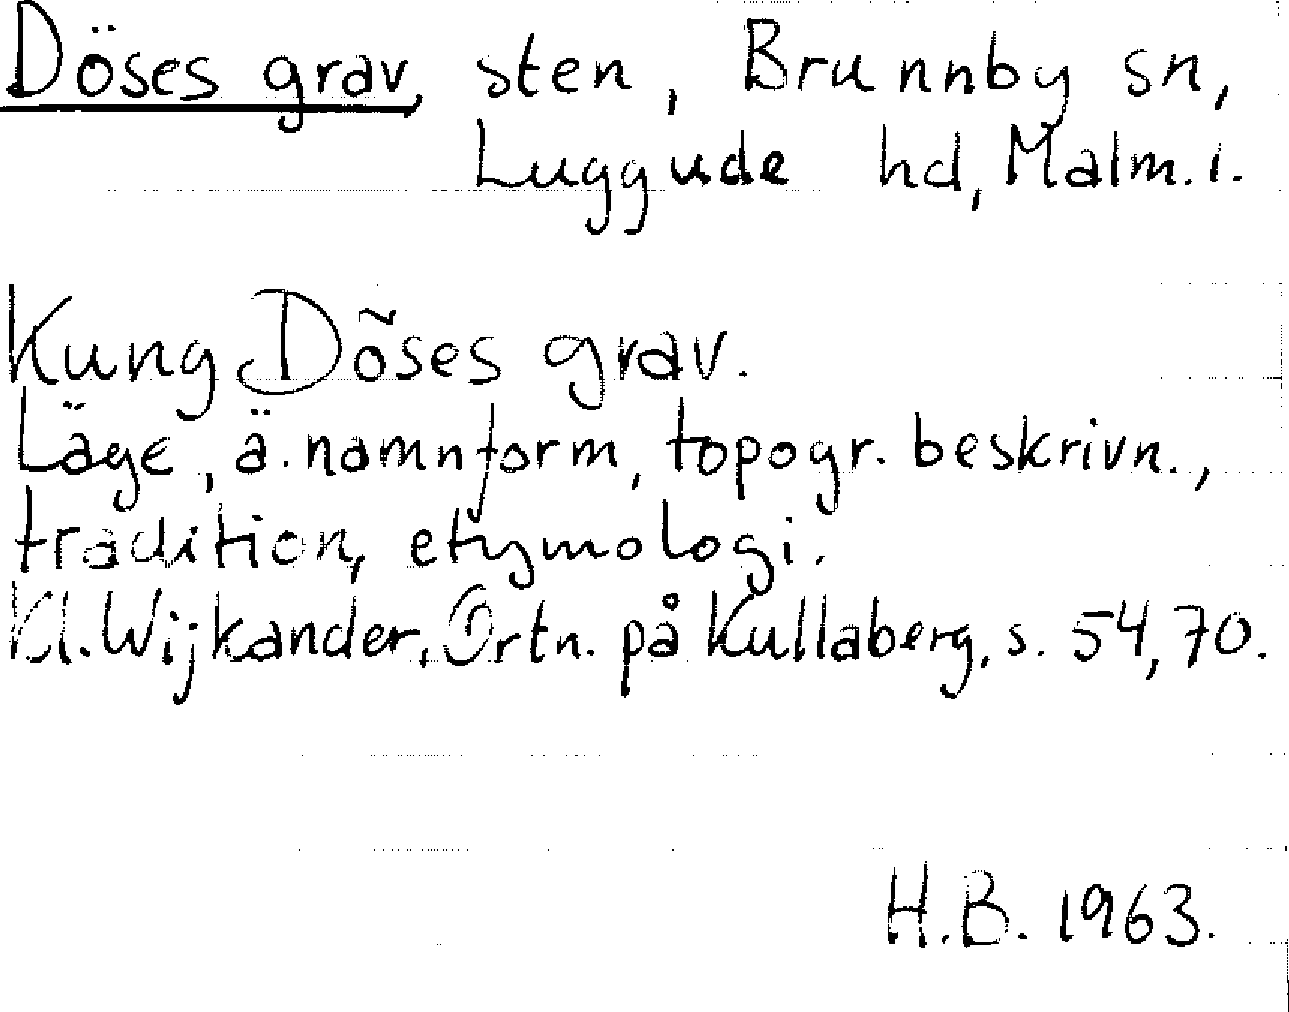 Döses grav, sten, Brunnby sn,
Luggude hd, Malm.i.
Kung Döses grav.
Läge, ä. namnform, topogr. beskrivn.,
tradition, etymologi.
Kl. Wijkander, Ortn. på Kullaberg, s. 54, 70.
H.B. 1963.